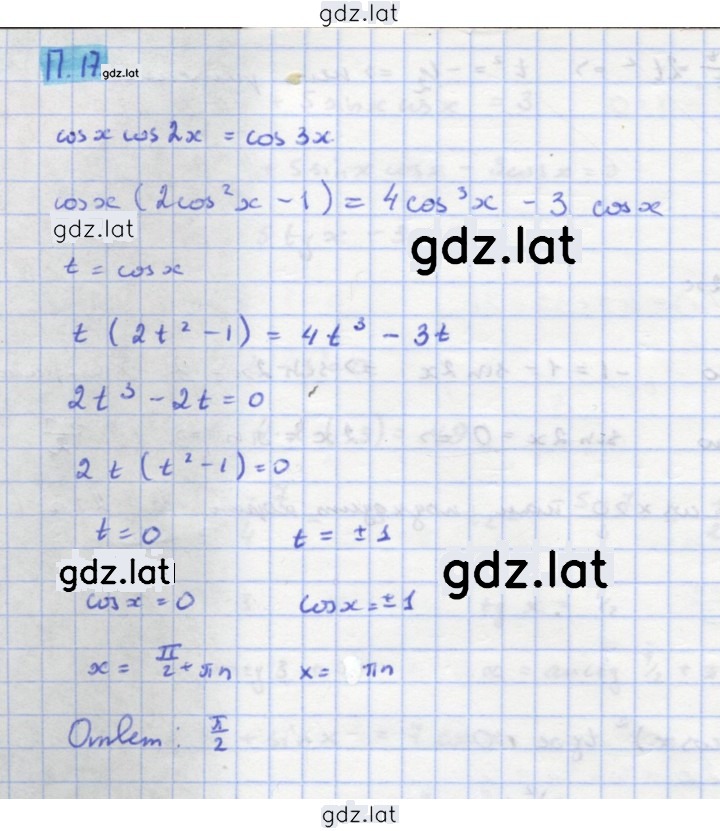 gdz.lat
П. 17 gdz.lat
cos x cos 2x = cos 3x
cos x (2cos²x - 1) = 4cos³x - 3 cos x
gdz.lat
gdz.lat
t = cos x
t (2t² - 1) = 4t³ - 3t
2t³ - 2t = 0
2t (t² - 1) = 0
t = 0 t = ±1
gdz.lat gdz.lat
cos x = 0 cos x = ±1
x = π/2 + πn x = πn
Ответ: π/2
gdz.lat